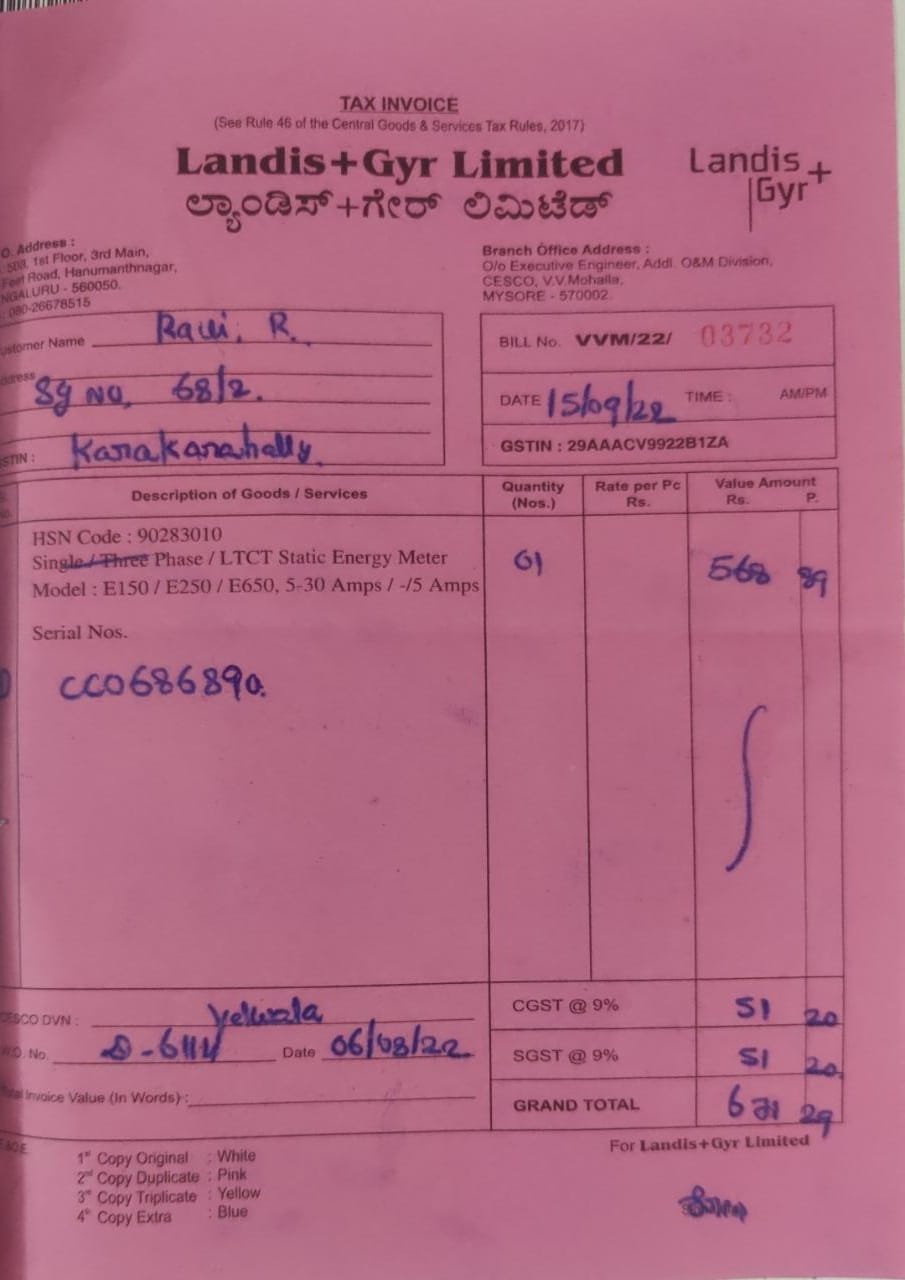 TAX INVOICE
(See Rule 46 of the Central Goods & Services Tax Rules, 2017)
Landis+Gyr Limited
Landis+Gyr
ಲ್ಯಾಂಡಿಸ್+ಗೇರ್ ಲಿಮಿಟೆಡ್
O. Address :
503, 1st Floor, 3rd Main,
Feet Road, Hanumanthnagar,
NGALURU - 560050.
: 080-26678515
Branch Office Address :
O/o Executive Engineer, Addl. O&M Division,
CESCO, V.V.Mohalla,
MYSORE - 570002.
ustomer Name Ravi. R.
ddress Sy No. 68/2.
STIN : Karakanahally.
BILL No. VVM/22/ 03732
DATE 15/09/22 TIME : AM/PM
GSTIN : 29AAACV9922B1ZA
Description of Goods / Services
Quantity (Nos.)
Rate per Pc Rs.
Value Amount Rs. P.
HSN Code : 90283010
Single / Three Phase / LTCT Static Energy Meter 01 568 89
Model : E150 / E250 / E650, 5-30 Amps / -/5 Amps
Serial Nos.
CC0686890.
CESCO DVN : Yelwala
W.O. No. Date 06/08/22
Total Invoice Value (In Words) :
CGST @ 9% 51 20
SGST @ 9% 51 20
GRAND TOTAL 671 29
E&OE
For Landis+Gyr Limited
1st Copy Original : White
2nd Copy Duplicate : Pink
3rd Copy Triplicate : Yellow
4th Copy Extra : Blue